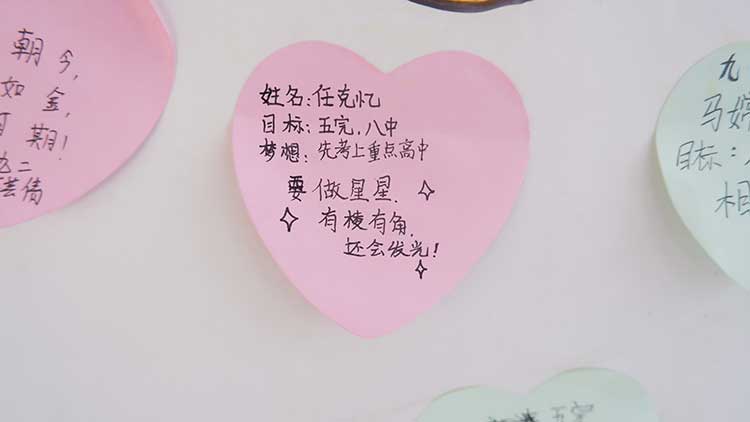 朝今,
如金,
期!
九二
芸倩
姓名:任克忆
目标:五完,八中
梦想:先考上重点高中
要做星星.
有棱有角.
还会发光!
九
马婷
目标:
相
五完